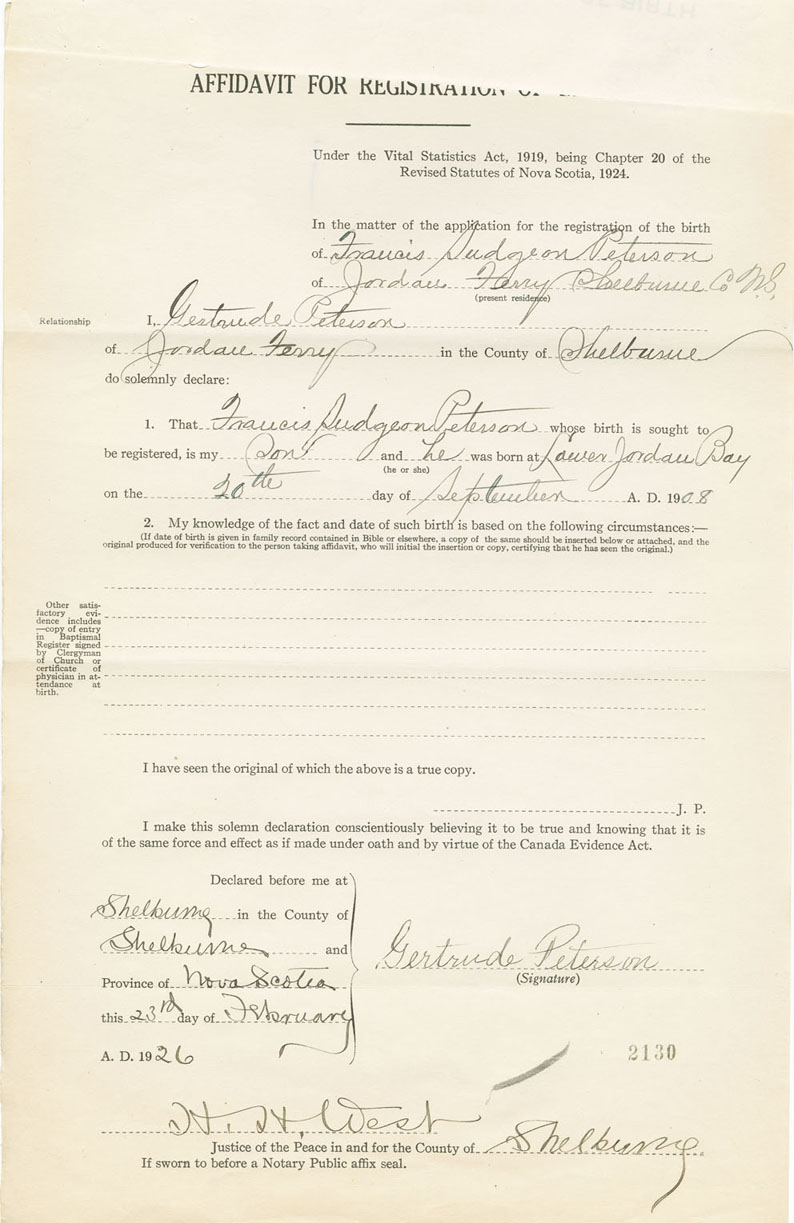 AFFIDAVIT FOR REGISTRATION OF
Under the Vital Statistics Act, 1919, being Chapter 20 of the
Revised Statutes of Nova Scotia, 1924.
In the matter of the application for the registration of the birth
of Francis Judgeon Peterson
of Jordan Ferry Shelburne Co N.S.
(present residence)
Relationship
I, Gertrude Peterson
of Jordan Ferry in the County of Shelburne
do solemnly declare:
1. That Francis Judgeon Peterson whose birth is sought to
be registered, is my Son and he was born at Lower Jordan Bay
(he or she)
on the 20th day of September A. D. 1908
2. My knowledge of the fact and date of such birth is based on the following circumstances:—
(If date of birth is given in family record contained in Bible or elsewhere, a copy of the same should be inserted below or attached, and the
original produced for verification to the person taking affidavit, who will initial the insertion or copy, certifying that he has seen the original.)
Other satis-
factory evi-
dence includes
—copy of entry
in Baptismal
Register signed
by Clergyman
of Church or
certificate of
physician in at-
tendance at
birth.
I have seen the original of which the above is a true copy.
J. P.
I make this solemn declaration conscientiously believing it to be true and knowing that it is
of the same force and effect as if made under oath and by virtue of the Canada Evidence Act.
Declared before me at
Shelburne in the County of
Shelburne and
Province of Nova Scotia
this 23rd day of February
A. D. 1926
Gertrude Peterson
(Signature)
2130
H. H. West
Justice of the Peace in and for the County of Shelburne
If sworn to before a Notary Public affix seal.